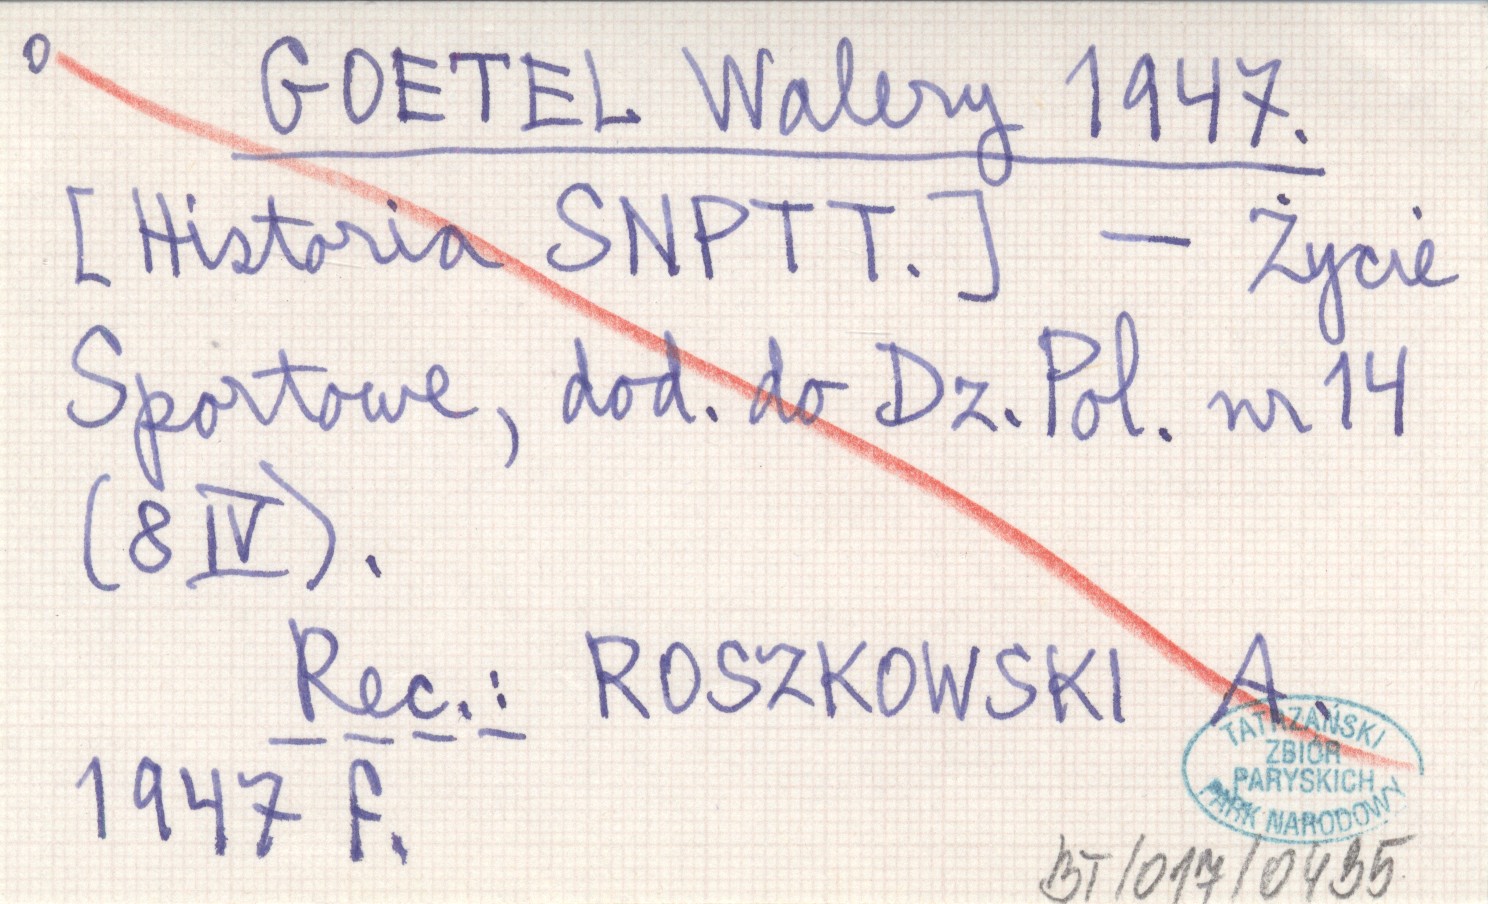 o
GOETEL Walery 1947.
[Historia SNPTT.] — Życie
Sportowe, dod. do Dz. Pol. nr 14
(8 IV).
Rec.: ROSZKOWSKI A.
1947 f.
TATRZAŃSKI
ZBIÓR
PARYSKICH
PARK NARODOWY
BT/017/0435